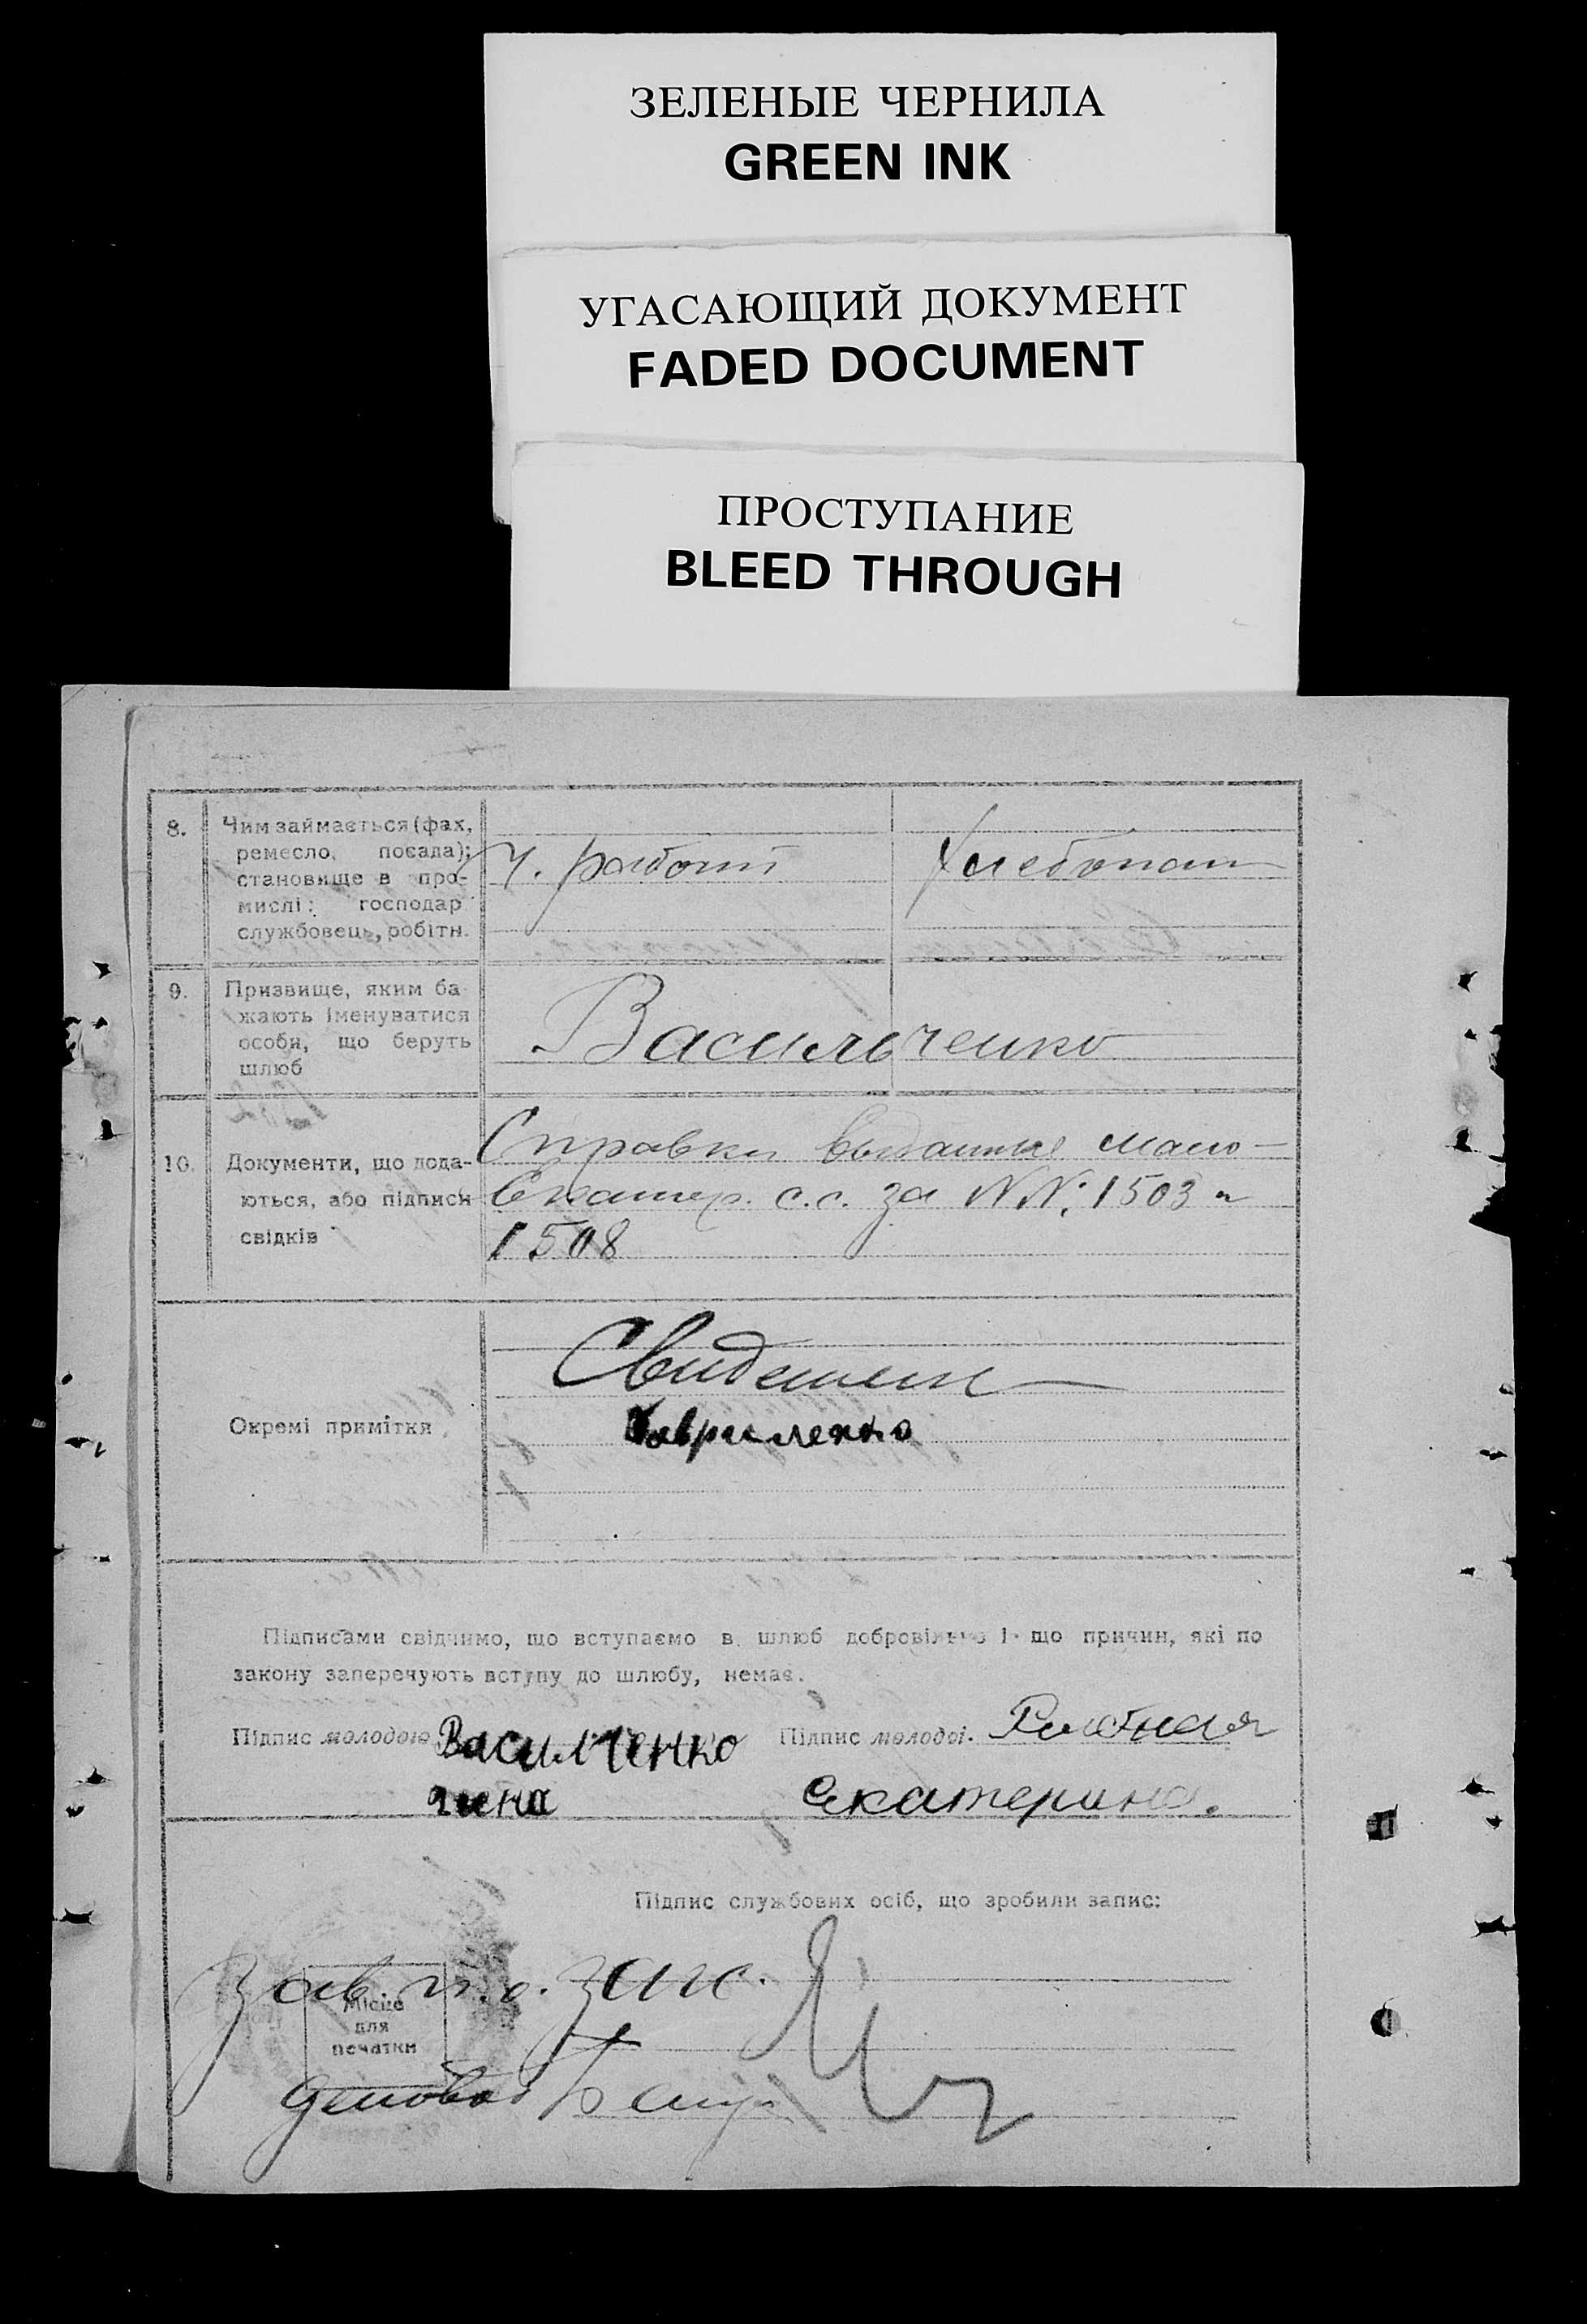 ЗЕЛЕНЫЕ ЧЕРНИЛА
GREEN INK
УГАСАЮЩИЙ ДОКУМЕНТ
FADED DOCUMENT
ПРОСТУПАНИЕ
BLEED THROUGH
8. Чим займається (фах,
ремесло, посада);
становище в про-
мислі: господар
службовець, робітн.
Ч. рабочий
Хлебопаш
9. Призвище, яким ба-
жають іменуватися
особи, що беруть
шлюб
Васильченко
10. Документи, що пода-
ються, або підписи
свідків
Справки выданные мало-
Екатер. с.с. за NN: 1503 и
1508
Окремі примітки
Свидетели
Гавриленко
Підписами свідчимо, що вступаємо в шлюб добровільно і що причин, які по
закону заперечують вступу до шлюбу, немає.
Підпис молодого Василченко Підпис молодої.
Екатерина.
Підпис службових осіб, що зробили запис:
Зав. п.о. загс.
Місце
для
печатки